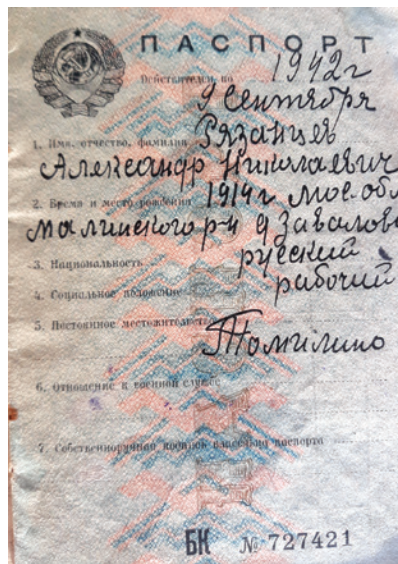 ПАСПОРТ
Действителен по 1942г
9 Сентября
1. Имя, отчество, фамилия Рязанцев
Александр Николаевич
2. Время и место рождения 1914г. Мос. обл
Малинского р-н д Завалово
3. Национальность русский
4. Социальное положение рабочий
5. Постоянное местожительство
Томилино
6. Отношение к военной службе
7. Собственноручная подпись владельца паспорта
БК № 727421